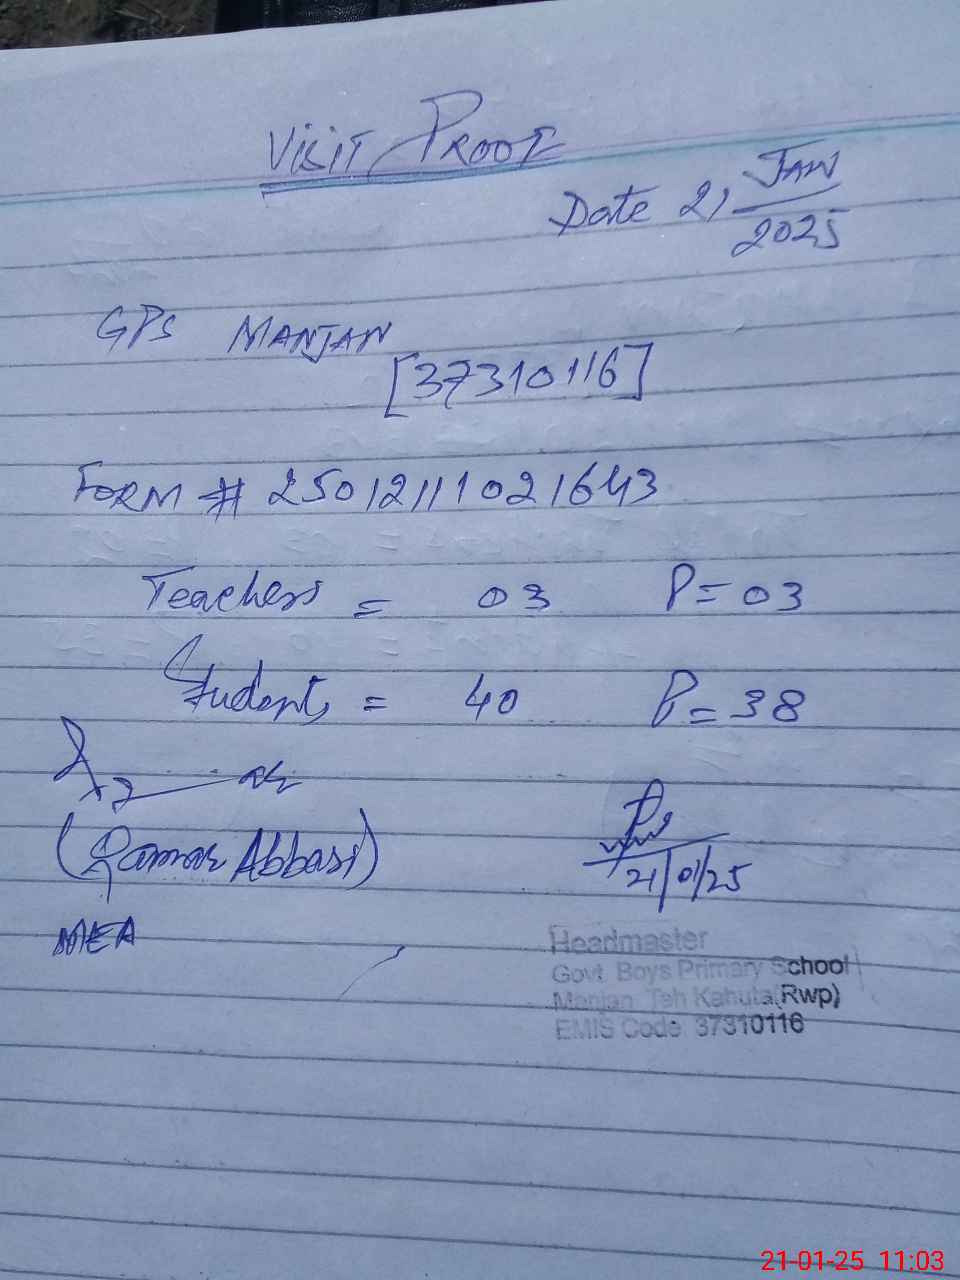 Visit Proof
Date 21 Jan
2025
GPS Manjan
[37310116]
Form # 25012111021643
Teachers = 03 P = 03
Students = 40 P = 38
(Qamar Abbasi)
21/01/25
MEA
Headmaster
Govt. Boys Primary School
Manjan Teh Kahuta(Rwp)
EMIS Code 37310116
21-01-25 11:03